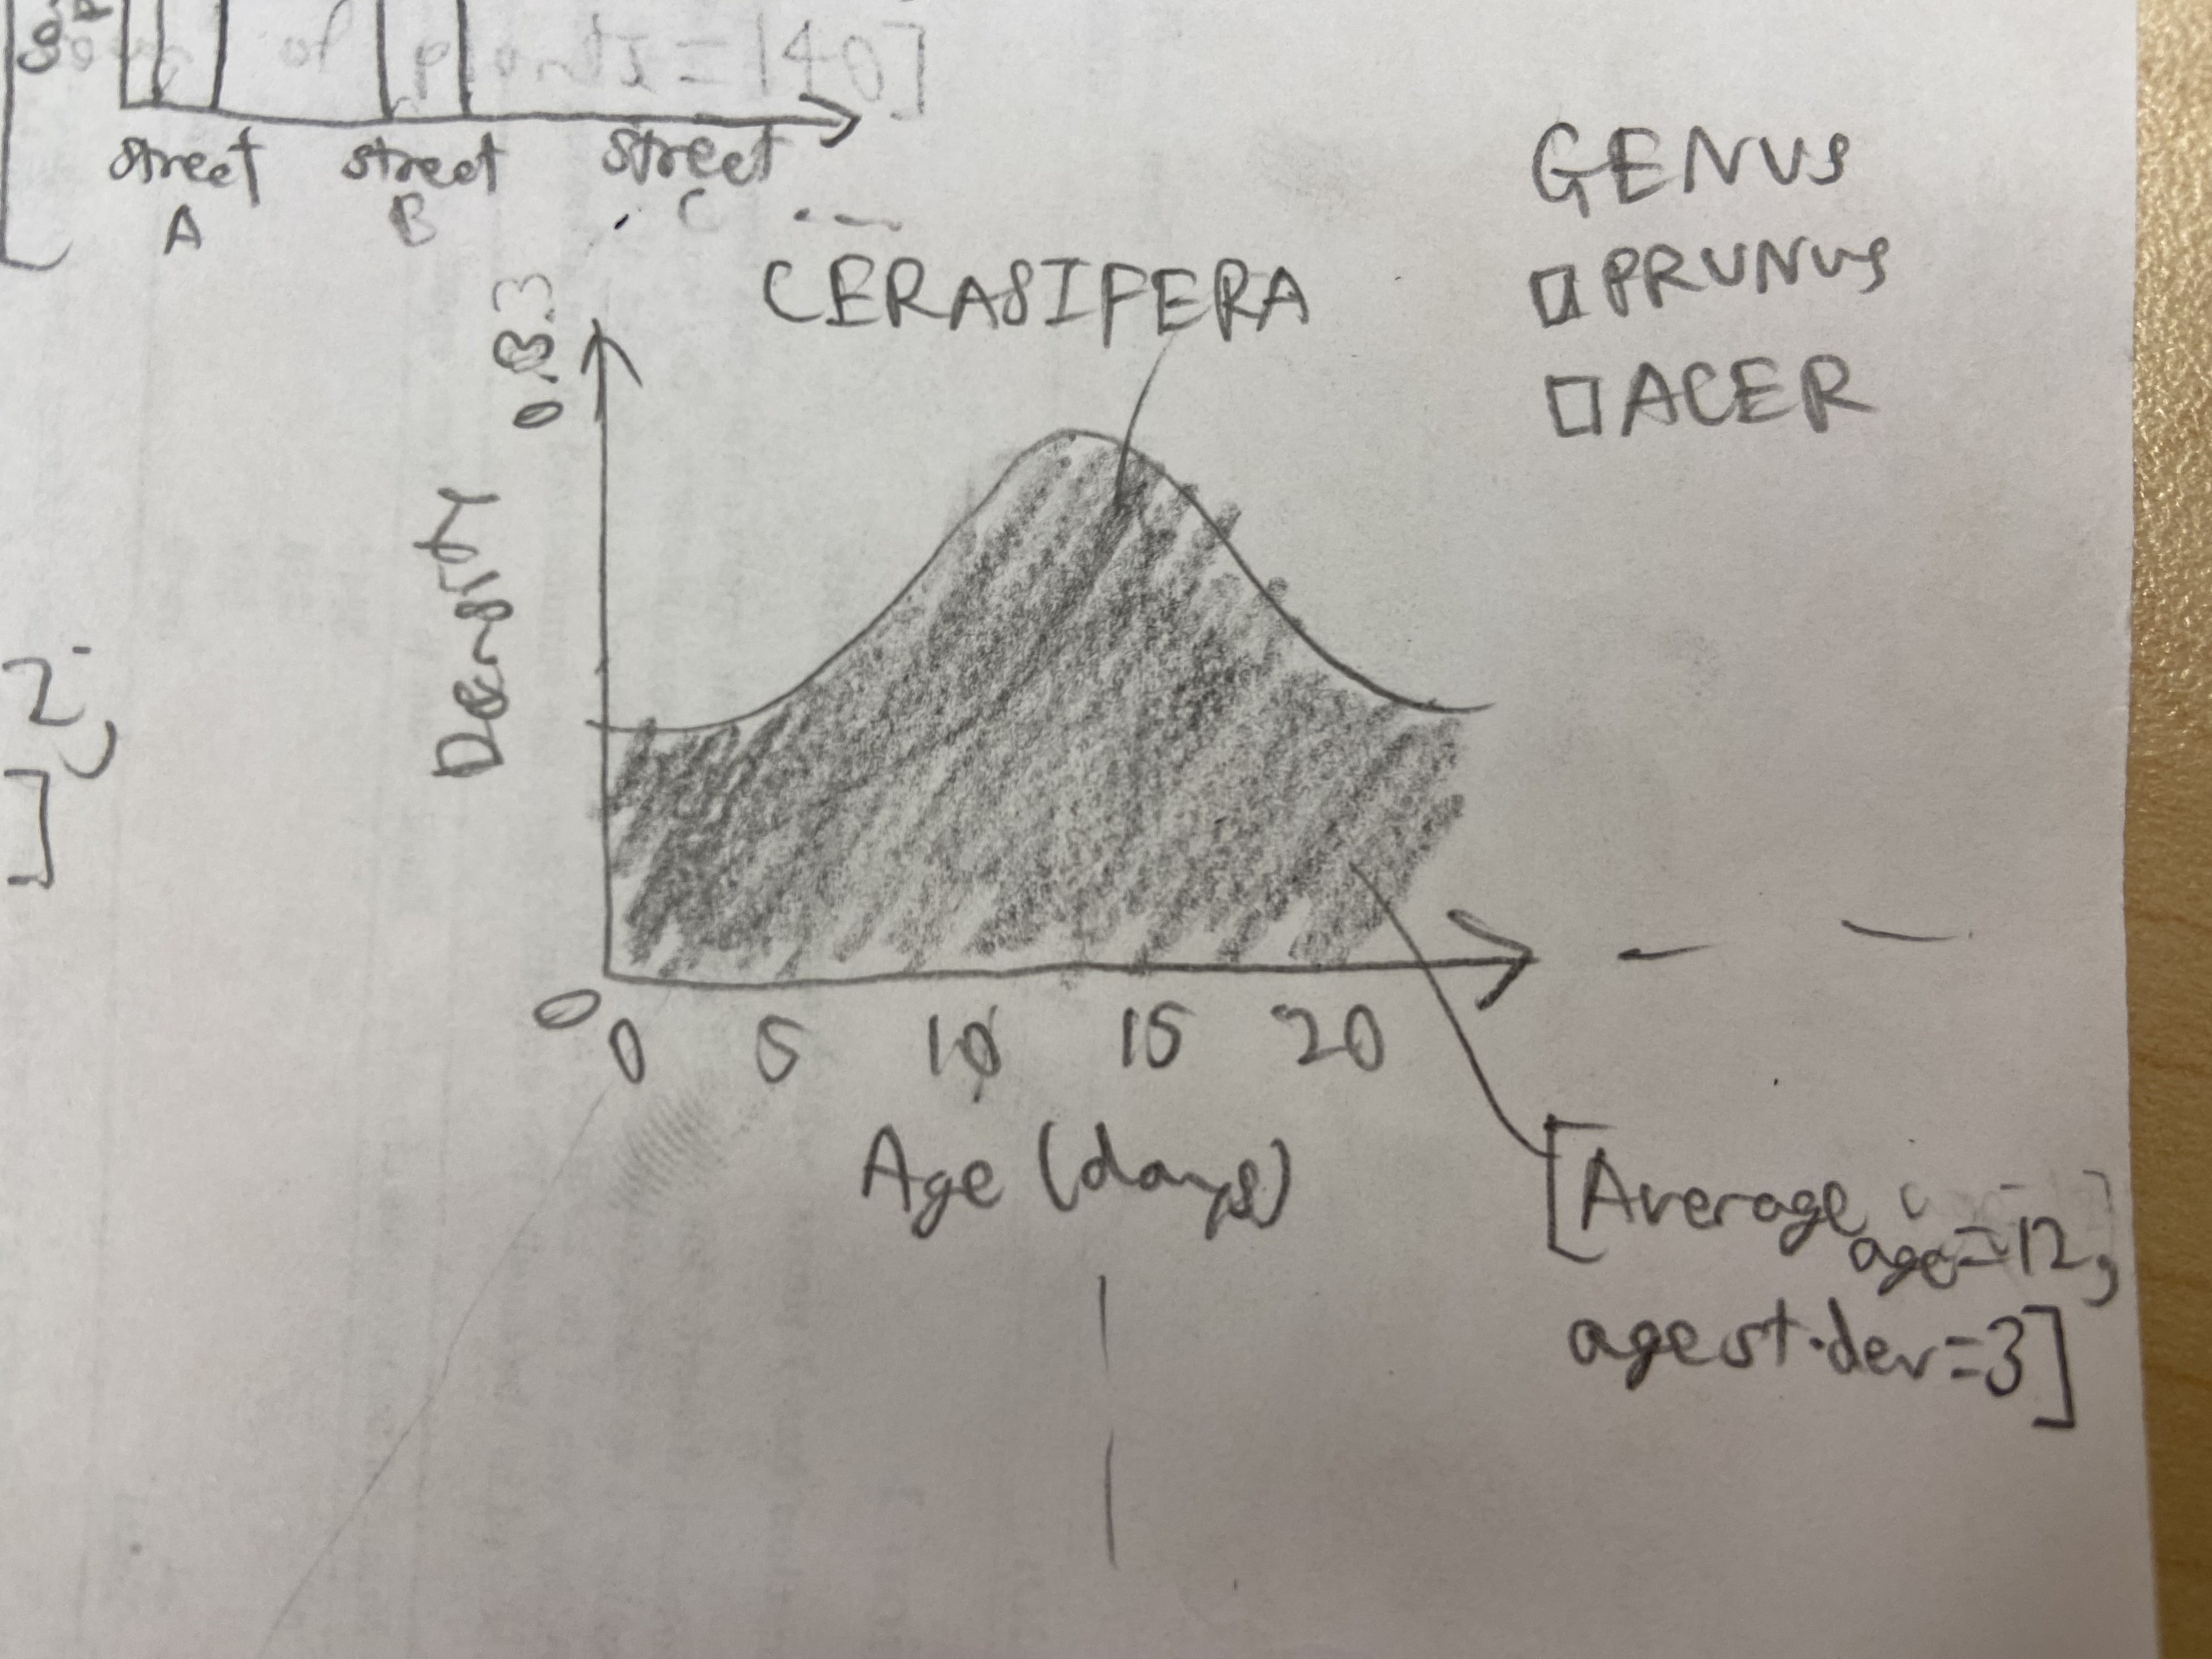 street street street
A B C
GENUS
PRUNUS
ACER
CERASIFERA
Density
0
0 5 10 15 20
Age (days)
[Average
age=12,
age st.dev=3]
2,
]